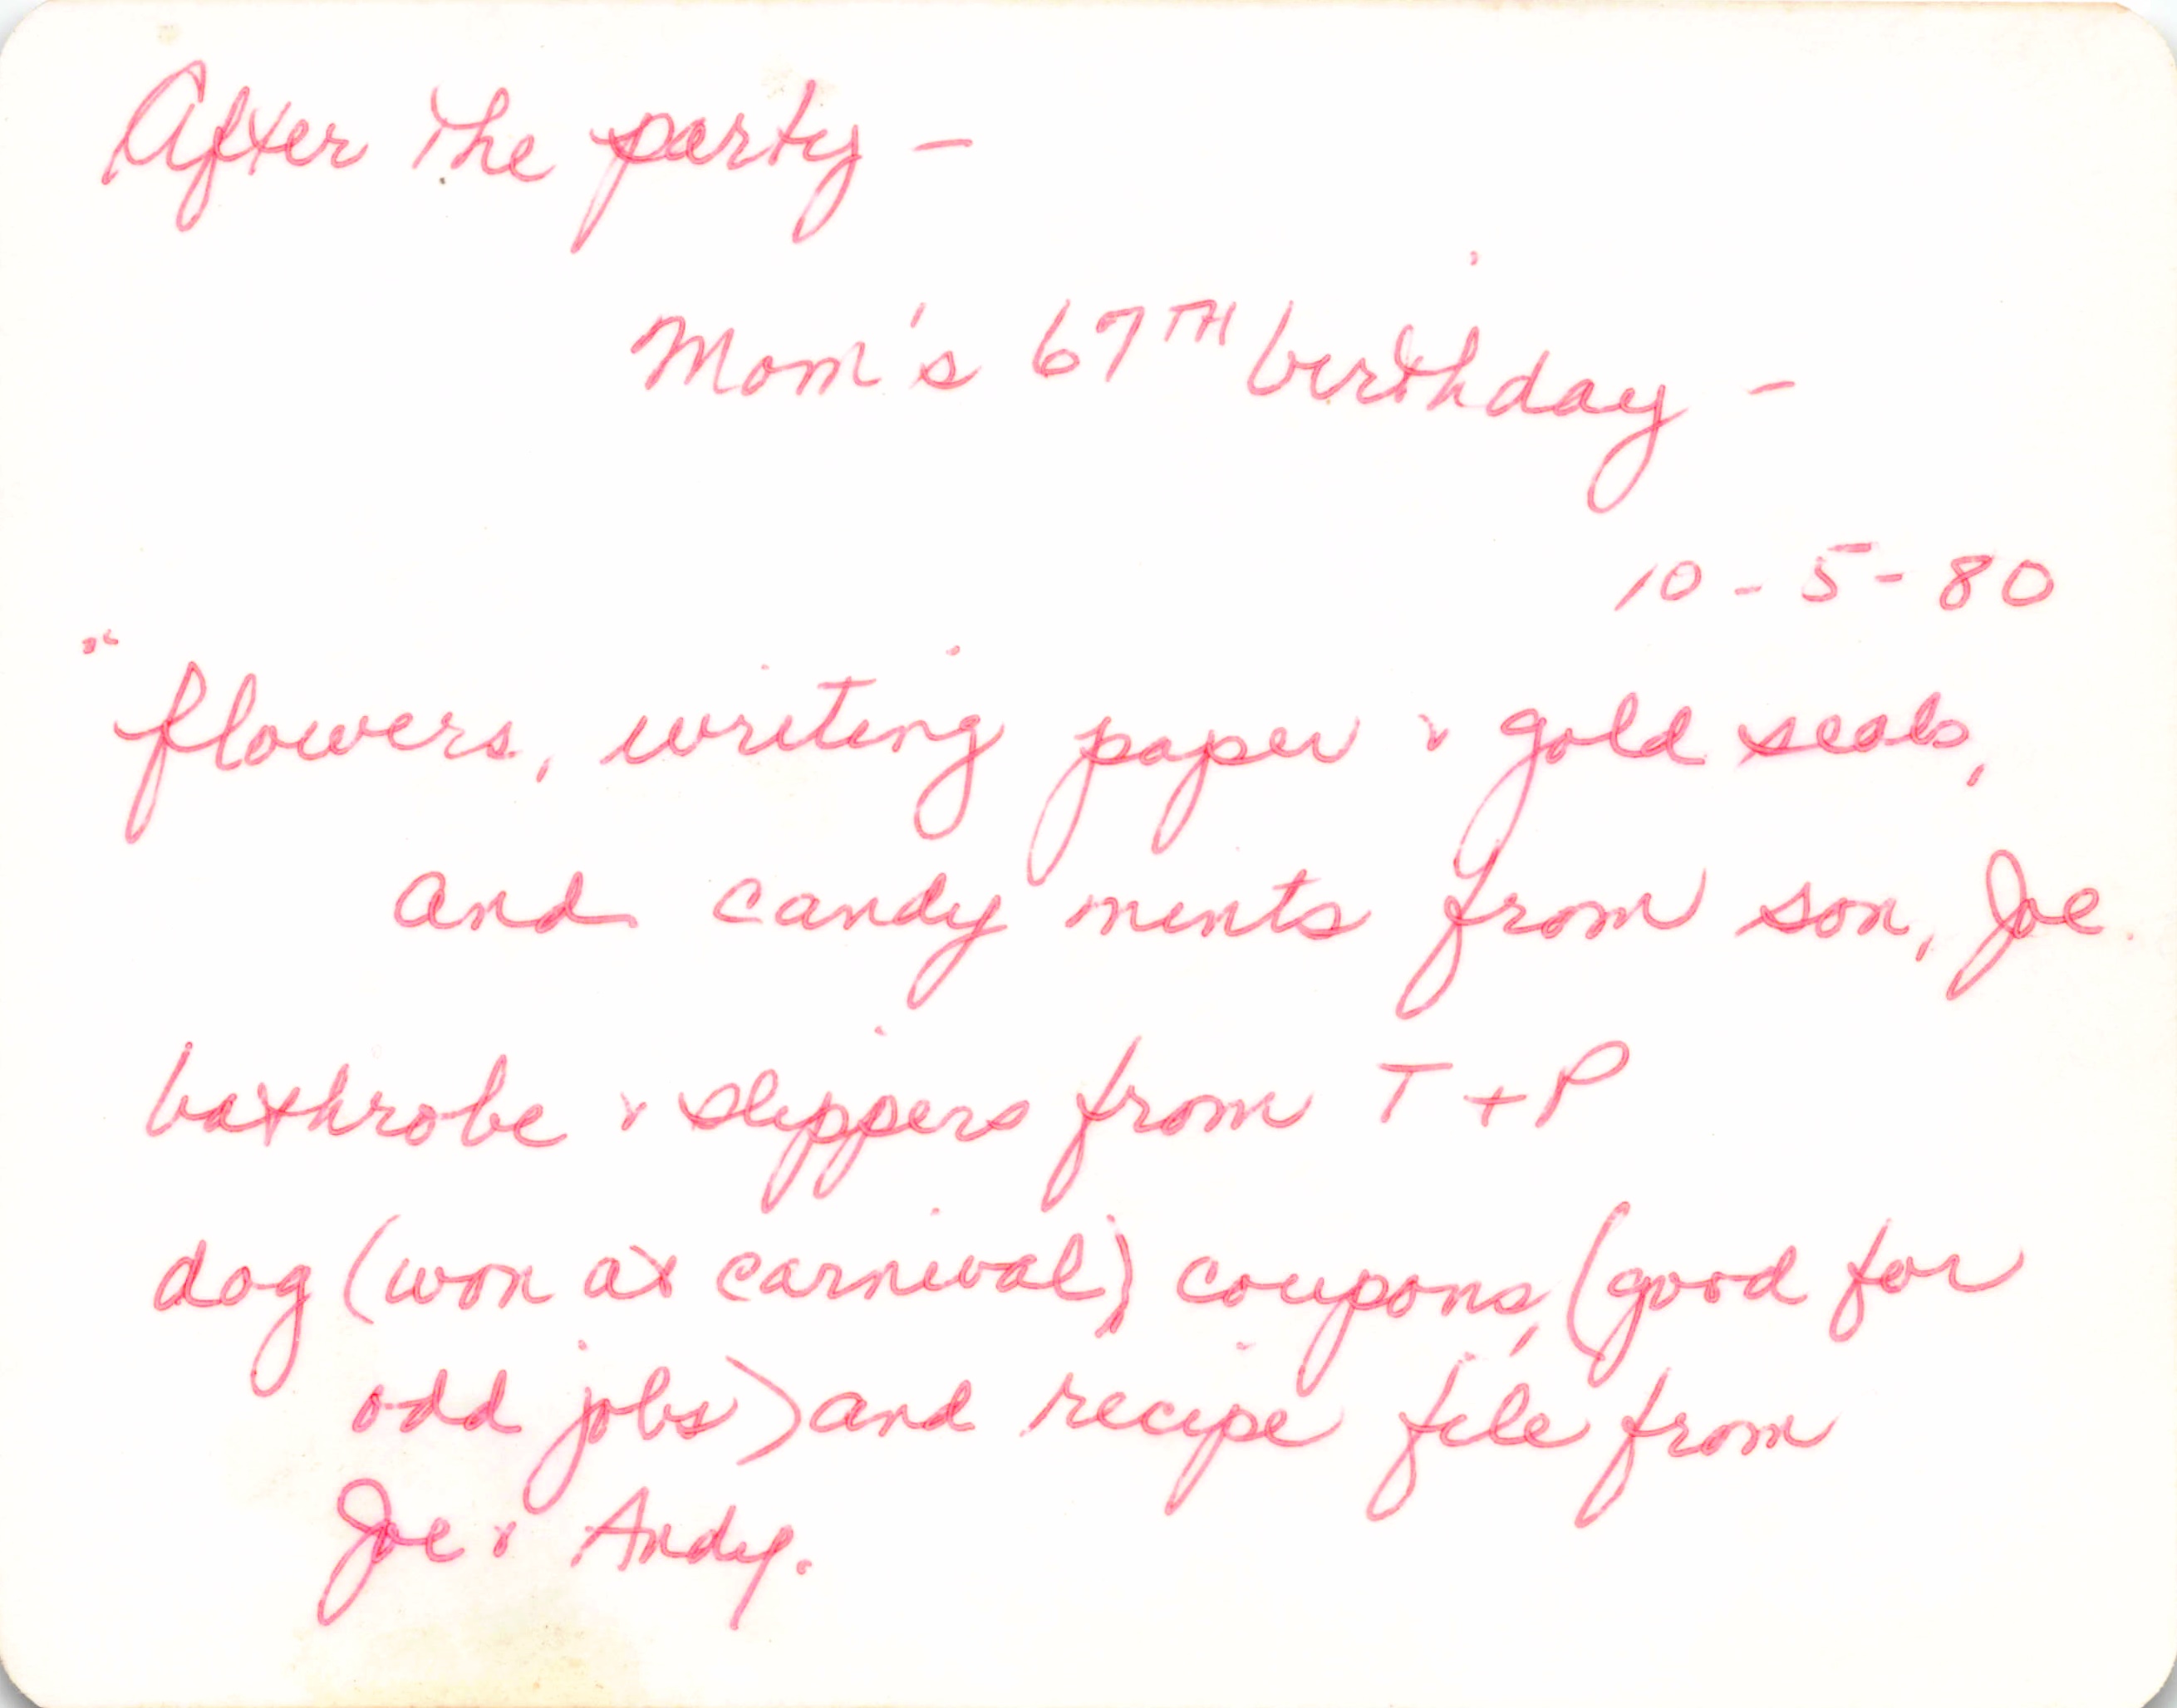 After the party –
Mom's 67TH birthday –
10-5-80
" flowers, writing paper & gold seals,
and candy mints from son, Joe.
bathrobe & slippers from T + P
dog (won at carnival), coupons, (good for
odd jobs) and recipe file from
Joe & Andy.